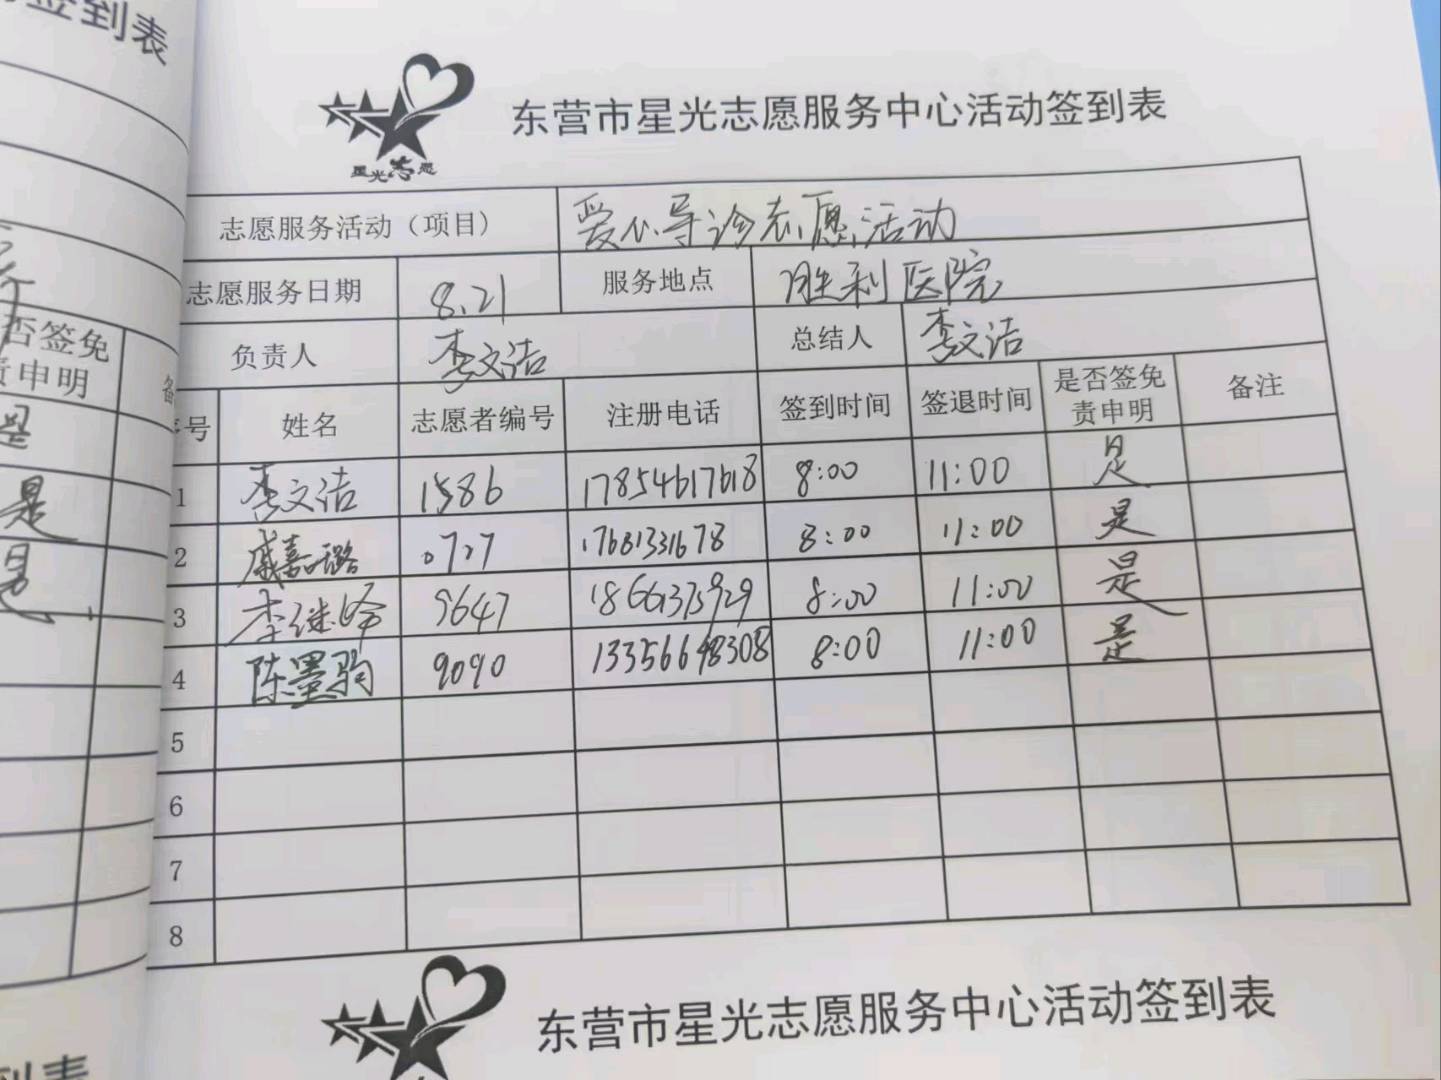 签到表
星光志愿
东营市星光志愿服务中心活动签到表
志愿服务活动（项目） 爱心导诊志愿活动
志愿服务日期 8.21 服务地点 胜利医院
负责人 李文洁 总结人 李文洁
序号 姓名 志愿者编号 注册电话 签到时间 签退时间 是否签免责申明 备注
1 李文洁 1586 17854617618 8:00 11:00 是
2 戚嘉璐 0727 17681331678 8:00 11:00 是
3 李继峰 9647 18661375929 8:00 11:00 是
4 陈墨驹 9090 13356648308 8:00 11:00 是
5
6
7
8
否签免
责申明
是
是
是
东营市星光志愿服务中心活动签到表
到表